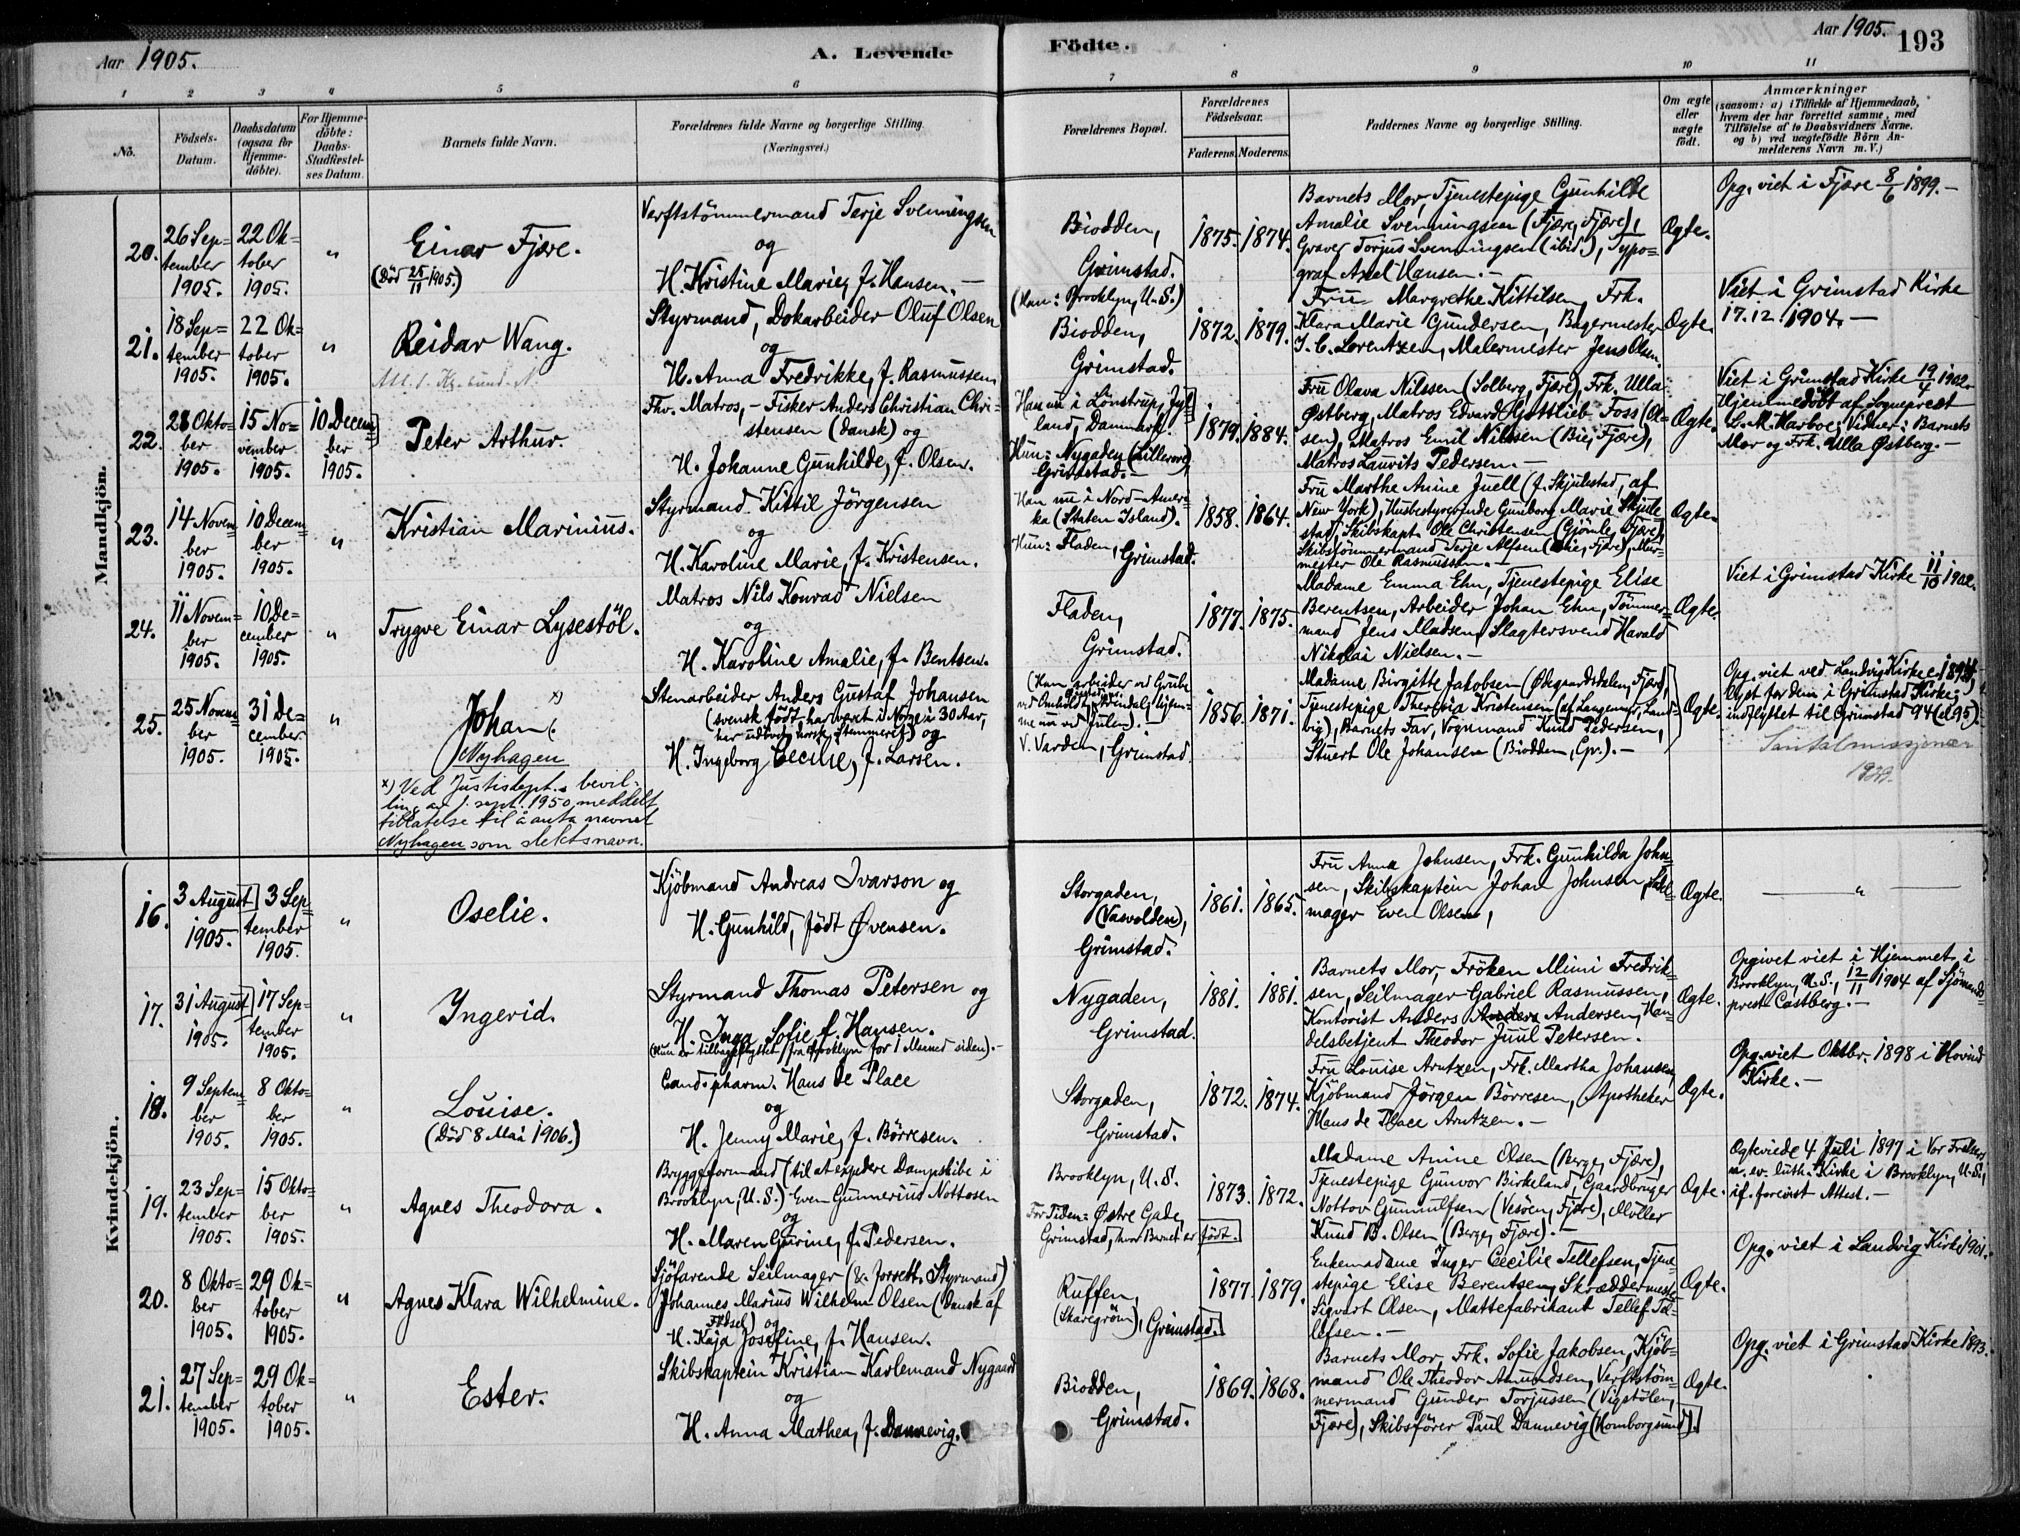 Aar 1905.
A. Levende
Födte.
Aar 1905.
193
1
2
3
4
5
6
7
8
9
10
11
No.
Födsels-
Datum.
Daabsdatum
(ogsaa for
Hjemme-
døbte).
For Hjemme-
döbte:
Daabs-
Stadfæstel-
ses Datum.
Barnets fulde Navn.
Forældrenes fulde Navne og borgerlige Stilling.
(Næringsvei.)
Forældrenes Bopæl.
Forældrenes
Födselsaar.
Faderens.
Moderens.
Faddernes Navne og borgerlige Stilling.
Om ægte
eller
uægte
födt.
Anmærkninger
(saasom: a) i Tilfælde af Hjemmedaab,
hvem der har forrettet samme, med
Tilföielse af to Daabsvidners Navne,
og b) ved uægtefödte Börn An-
melderens Navn m. V.)
Mandkjön.
20.
26 Sep-
tember
1905.
22 Ok-
tober
1905.
"
Einar Fjære.
(Död 25/11 1905.)
Verftstømmermand Terje Svenningsen
og
H. Kristine Marie, f. Hansen. —
Biodden,
Grimstad.
1875.
1874.
Barnets Mor, Tjenestepige Gunhilde
Amalie Svenningsen (Fjære, Fjære),
Graver Torjus Svenningsen (ibid.), Typo-
graf Axel Hansen. —
Ægte.
Opg. viet i Fjære 8/6 1899. —
21.
18 Sep-
tember
1905.
22 Ok-
tober
1905.
"
Reidar Wang.
Styrmand, Dokarbeider Oluf Olsen
og
H. Anna Fredrikke, f. Rasmussen
(Han: Brooklyn, U.S.)
Biodden,
Grimstad.
1872.
1879.
Fru Margrethe Kittilsen, Frk.
Klara Marie Gundersen, Bagermester
J. C. Lorentzen, Malermester Jens Olsen.
Ægte.
Viet i Grimstad Kirke
17.12.1904. —
22.
28 Okto-
ber
1905.
15 No-
vember
1905.
10 Decem-
ber
1905.
Peter Arthur.
Fhv. Matros, – Fisker Anders Christian Chri-
stensen (dansk) og
H. Johanne Gunhilde, f. Olsen.
Han nu i Lönstrup, Jyl-
land, Danmark.
Hun: Nygaden (Lillerove)
Grimstad. —
1879.
1884.
Fru Olava Nilssen (Solberg, Fjære), Frk. Ulla
Østberg, Matros Edvard Gottlieb Foss (Ol-
sen), Matros Emil Nilssen (Bie, Fjære),
Matros Laurits Pedersen. —
Ægte.
Viet i Grimstad Kirke 19/4 1902.
Hjemmedöbt af Sogneprest
L. M. Harboe; Vidner: Barnets
Mor og Frk. Ulla Østberg. —
23.
14 Novem-
ber
1905.
10 Decem-
ber
1905.
"
Kristian Marinius.
Styrmand Kittil Jörgensen
og
H. Karoline Marie, f. Kristensen.
Han nu i Nord-Ameri-
ka (Staten Island).
Hun: Fladen, Grimstad.
1858.
1864.
Fru Marthe Anine Juell (f. Skjulestad, af
New York), Husbestyrerinde Gunborg Marie Skjule-
stad, Skibskapt. Ole Christensen (Gjömle, Fjære),
Skibstömmermand Terje Alfsen (Bie, Fjære), Mur-
mester Ole Rasmussen. —
Ægte.
24.
11 Novem-
ber
1905.
10 De-
cember
1905.
"
Trygve Einar Lysestöl.
Matros Nils Konrad Nielsen
og
H. Karoline Amalie, f. Bentsen.
Fladen,
Grimstad.
1877.
1875.
Madame Emma Ehn, Tjenestepige Elise
Berentsen, Arbeider Johan Ehn, Tömmer-
mand Jens Madsen, Slagtersvend Harald
Nikolai Nielsen. —
Ægte.
Viet i Grimstad Kirke 11/10 1902.
25.
25 Novem-
ber
1905.
31 De-
cember
1905.
"
Johan. x)
Nyhagen
x) Ved Justisdept.s bevil-
ling av 1. sept. 1950 meddelt
tillatelse til å anta navnet
Nyhagen som slektsnavn.
Stenarbeider Anders Gustaf Johansen
(svensk født, har været i Norge i 30 Aar,
har udövet norsk Stemmeret) og
H. Ingeborg Cecilie, f. Larsen.
(Han arbeider ved Grube
ved Omholdt, Arendal; hjem-
me nu ved Julen).
V. Varden, Grimstad
1856.
1871.
Madame Birgitte Jakobsen (Ødegaardsdalen, Fjære),
Tjenestepige Theresia Kristensen (af Langemyr, Land-
vig), Barnets Far, Vognmand Knud Pedersen,
Stuert Ole Johansen (Biodden, Gr.). —
Ægte.
Opg. viet ved Landvig Kirke c. 1894,
lyst for dem i Grimstad Kirke;
indflyttet til Grimstad 94 (el. 95).
Santalmissjonær
Kvindekjön.
16.
3 August
1905.
3 Sep-
tember
1905.
"
Oselie.
Kjöbmand Andreas Ivarson og
H. Gunhild, født Øvensen.
Storgaden,
(Vasvolden),
Grimstad.
1861.
1865.
Fru Anna Johnsen, Frk. Gunhilda John-
sen, Skibskaptein Johan Johnsen,
mager Even Olsen,
Ægte.
— " —
17.
31 August
1905.
17 Sep-
tember
1905.
"
Ingerid.
Styrmand Thomas Petersen og
H. Inga Sofie f. Hansen.
(Hun er tilbageflyttet fra Brooklyn for 1 Maaned siden). —
Nygaden,
Grimstad.
1881.
1881.
Barnets Mor, Fröken Mimi Fredrik-
sen, Seilmager Gabriel Rasmussen,
Kontorist Anders Andersen, Han-
delsbetjent Theodor Juul Petersen.
Ægte.
Opgivet viet i Hjemmet i
Brooklyn, U.S., 12/11 1904 af Sjömands-
prest Castberg. —
18.
9 Septem-
ber
1905.
8 Okto-
ber
1905.
"
Louise.
(Död 8 Mai 1906.)
Cand. pharm. Hans de Place
og
H. Jenny Marie, f. Börresen.
Storgaden,
Grimstad.
1872.
1874.
Fru Louise Arntzen, Frk. Martha Johansen,
Kjöbmand Jörgen Börresen, Apotheker
Hans de Place Arntzen. —
Ægte.
Opg. viet Oktbr. 1898 i Hovind
Kirke. —
19.
23 Sep-
tember
1905.
15 Okto-
ber
1905.
"
Agnes Theodora.
Bryggeformand (til at expedere Dampskibe i
Brooklyn, U.S.) Even Gunnerius Nottosen
og
H. Maren Gurine, f. Pedersen.
Brooklyn, U.S.
For Tiden: Østre Gade,
Grimstad, hvor Barnet er født.
1873.
1872.
Madame Anine Olsen (Berge, Fjære),
Tjenestepige Gunvor Birkeland, Gaardbruger
Nottov Gunnulfsen (Vesöen, Fjære), Möller
Knud B. Olsen (Berge, Fjære). —
Ægte.
Ægteviede 4 Juli 1897 i Vor Frelsers
n. ev. luth. Kirke i Brooklyn, U.S.,
if. forevist Attest. —
20.
8 Okto-
ber
1905.
29 Ok-
tober
1905.
"
Agnes Klara Wilhelmine.
Sjöfarende Seilmager (& Styrmand)
Johannes Marius Wilhelm Olsen (Dansk af
Födsel) og
H. Kaja Josefine, f. Hansen.
Ruffen,
(Skaregröm), Grimstad.
1877.
1879.
Enkemadame Inger Cecilie Tellefsen, Tjene-
stepige Elise Berentsen, Skræddermester
Sigvart Olsen, Mattefabrikant Tellef Tel-
lefsen. —
Ægte.
Opg. viet i Landvig Kirke 1901.
21.
27 Sep-
tember
1905.
29 Ok-
tober
1905.
"
Ester.
Skibskaptein Kristian Karlemand Nygaard
og
H. Anna Mathea, f. Dannevig.
Biodden,
Grimstad.
1869.
1868.
Barnets Mor, Frk. Sofie Jakobsen, Kjöb-
mand Ole Theodor Amundsen, Verftstöm-
mermand Gunder Torjussen (Vigstölen,
Fjære), Skibsförer Paul Dannevig (Homborgsund).
Ægte.
Opg. viet i Grimstad Kirke 1893.